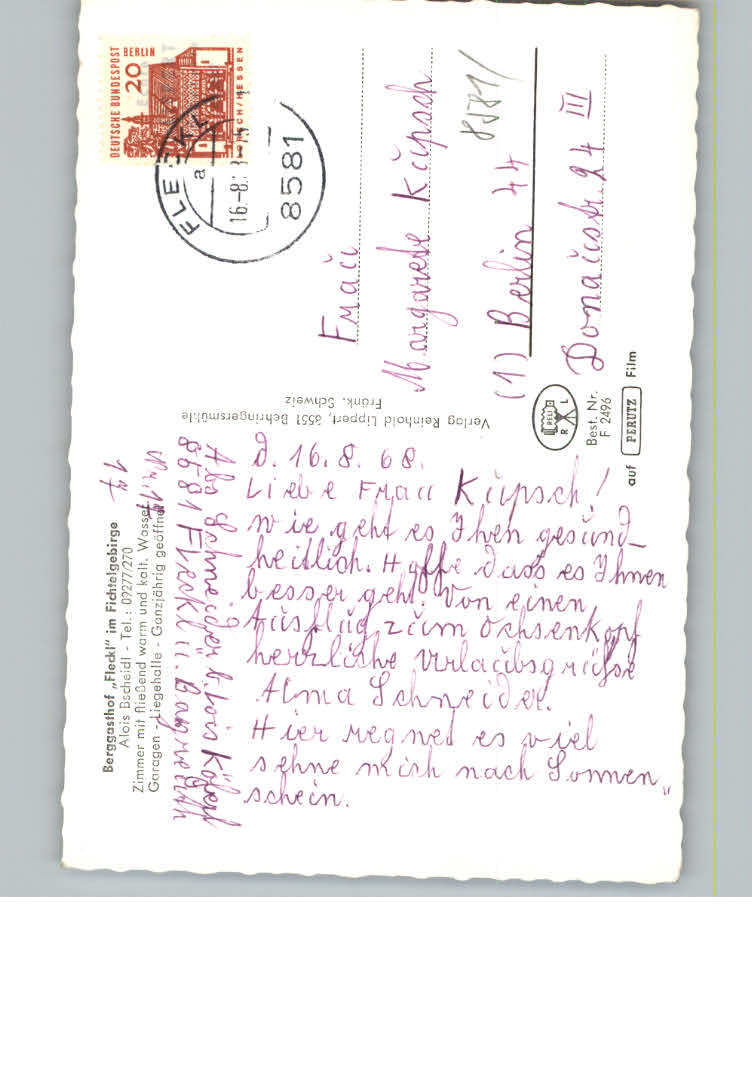 Berggasthof „Fleckl" im Fichtelgebirge
Alois Bscheidl - Tel.: 09277/270
Zimmer mit fließend warm und kalt. Wasser
Garagen - Liegehalle - Ganzjährig geöffnet
17
Nr. 17
8581 Fleckl ü. Bayreuth
Abs Schneider b. Lois Köferl
d. 16. 8. 68.
Liebe Frau Küpsch!
wie geht es Ihnen gesund-
heitlich. Hoffe dass es Ihnen
besser geht. Von einen
Ausflug zum Ochsenkopf
herzliche Urlaubsgrüsse
Alma Schneider.
Hier regnet es viel
sehne mich nach Sonnen„
schein.
Verlag Reinhold Lippert, 8551 Behringersmühle
Fränk. Schweiz
DEUTSCHE BUNDESPOST
BERLIN
20
LORSCH/HESSEN
FLECKL
a
16.-8.
8581
8581/
Frau
Margarete Küpsch
(1) Berlin 44
Donaustr. 94 III
RELI
R L
Best. Nr.
F 2496
auf PERUTZ Film